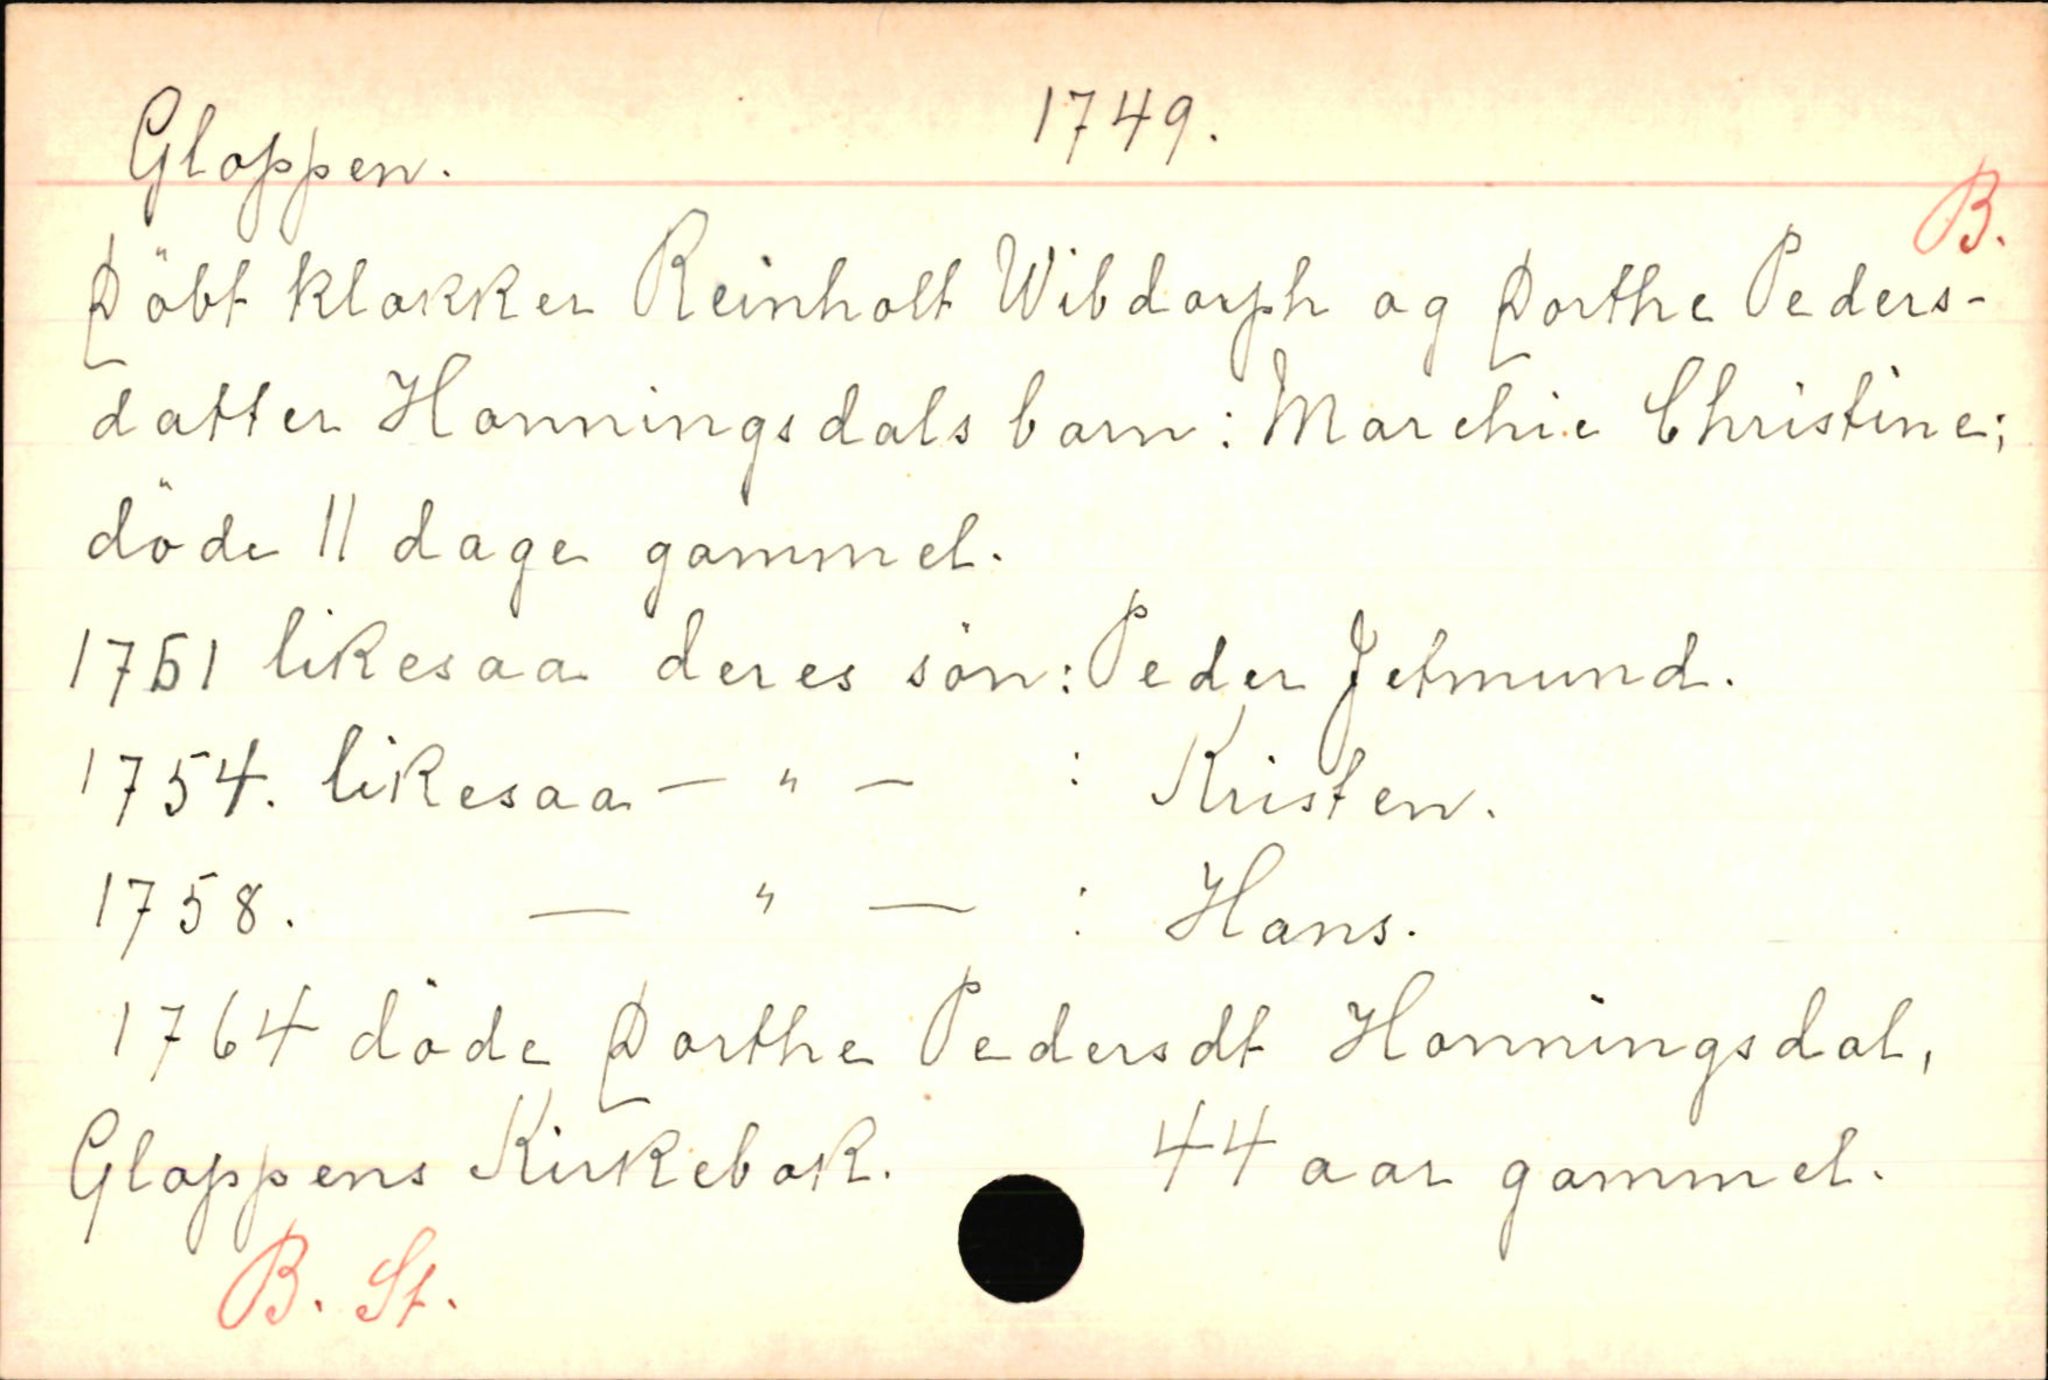 Gloppen. 1749.
B.
Döbt klokker Reinholt Wibdorph og Dorthe Peders-
datter Honningsdals barn: Marchie Christine;
döde 11 dage gammel.
1751 likesaa deres sön: Peder Jetmund.
1754. likesaa — " — : Kristen.
1758. — " — : Hans.
1764 döde Dorthe Pedersdt Honningsdal,
Gloppens Kirkebok. 44 aar gammel.
B. St.